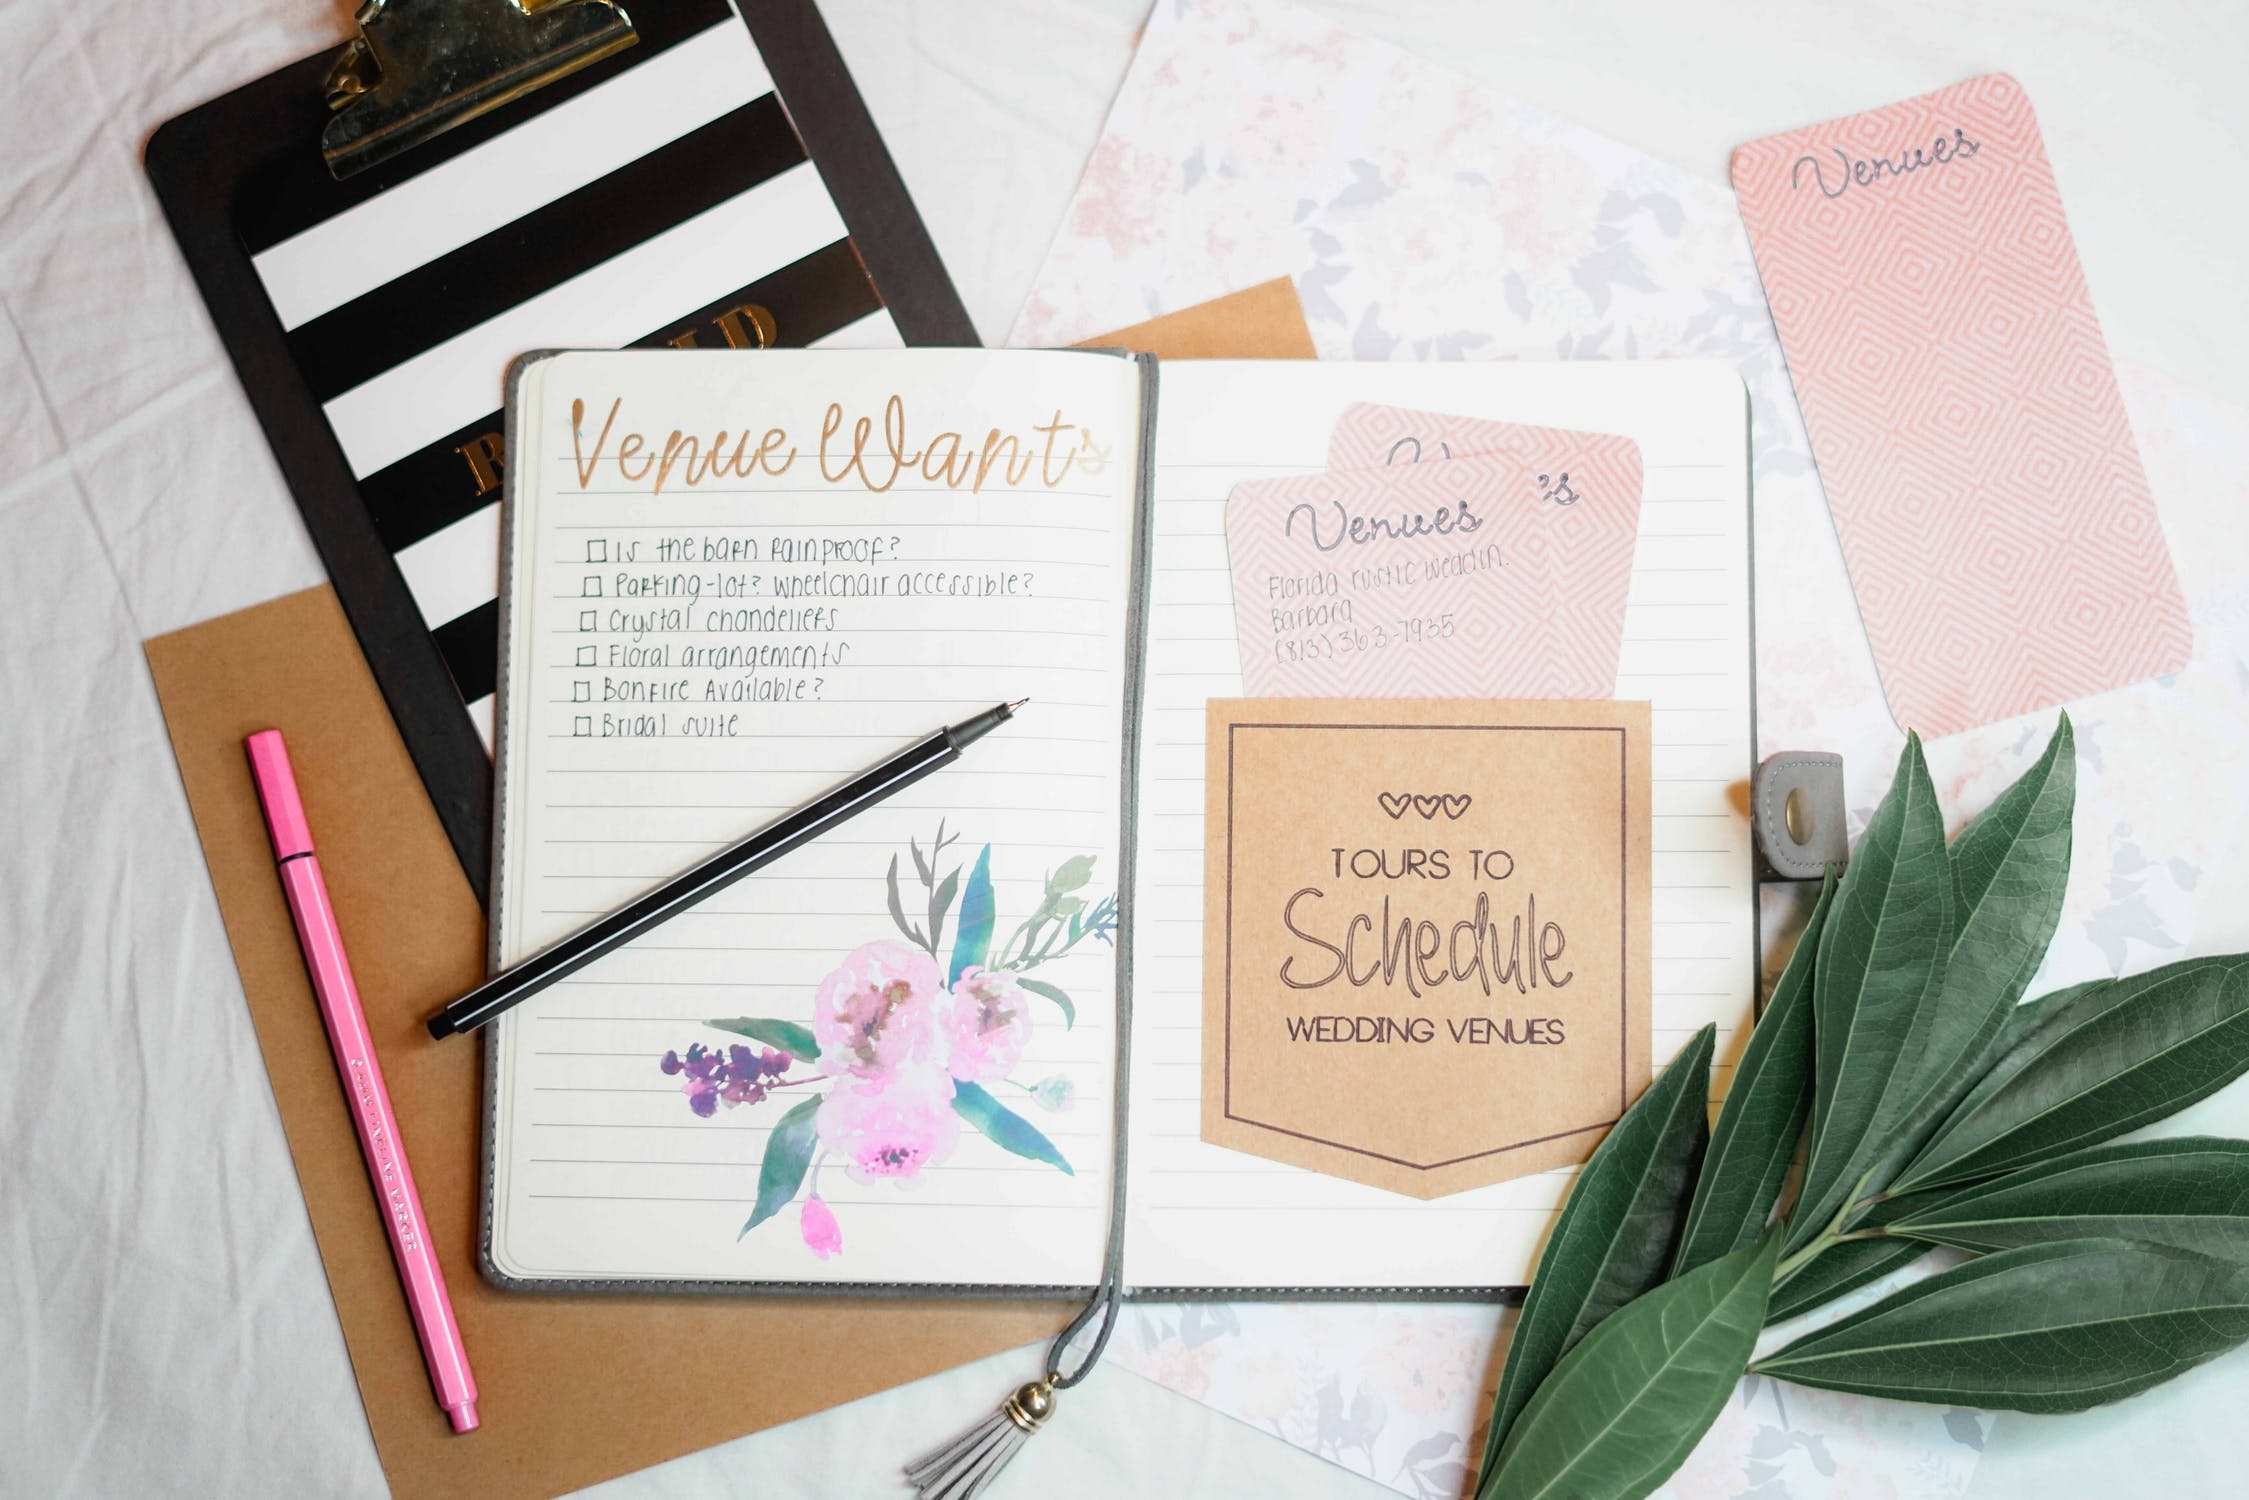 Venue Wants
Is the barn rainproof?
Parking-lot? wheelchair accessible?
Crystal chandeliers
Floral arrangements
Bonfire Available?
Bridal suite
Venues
's
Florida rustic weddin.
Barbara
(813) 363-7935
TOURS TO
Schedule
WEDDING VENUES
Venues